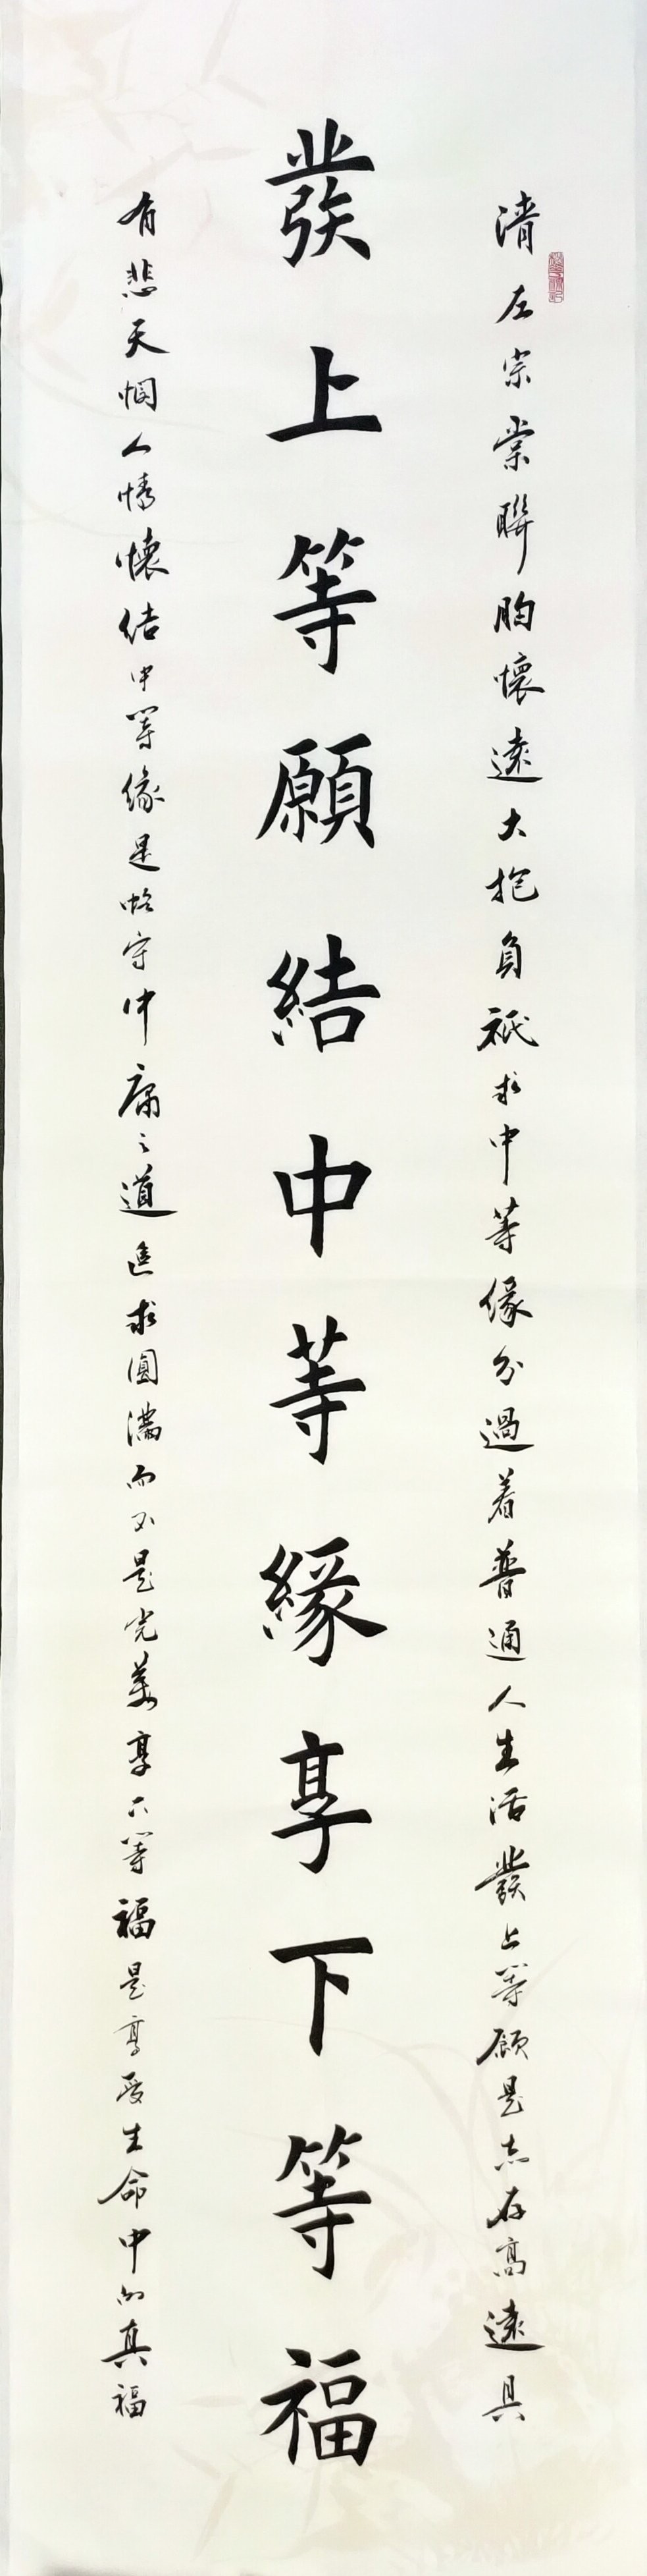 清左宗棠聯胸懷遠大抱負祇求中等緣分過着普通人生活發上等願是志存高遠具
發上等願結中等緣享下等福
有悲天悯人情懷结中等緣是恪守中庸之道追求圓滿而不是完美享下等福是享受生命中的真福